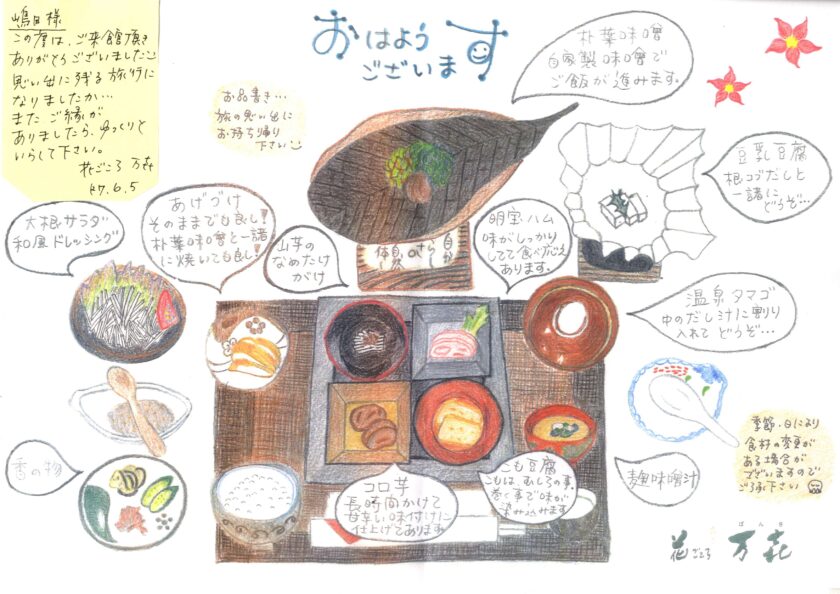 嶋田様
この度は、ご来館頂き
ありがとうございました
思い出に残る旅行に
なりましたか…
また ご縁が
ありましたら、ゆっくりと
いらして下さい。
花ごころ 万㐂
R7.6.5
おはよう
ございます
お品書き…
旅の思い出に
お持ち帰り
下さい
朴葉味噌
自家製味噌で
ご飯が進みます。
豆乳豆腐
根コブだしと
一諸に
どうぞ…
大根サラダ
和風ドレッシング
あげづけ
そのままでも良し!
朴葉味噌と一諸
に焼いても良し!
山芋の
なめたけ
がけ
明宝ハム
味がしっかり
してて食べ応え
あります。
温泉タマゴ
中のだし汁に割り
入れて どうぞ…
香の物
コロ芋
長時間かけて
甘辛い味付けに
仕上げてあります
こも豆腐
こもは、むしろの事。
巻く事で味が
染み込みます
麹味噌汁
季節、日により
食材の変更が
ある場合が
ございますので
ご了承下さい
花ごころ 万㐂
ばんき